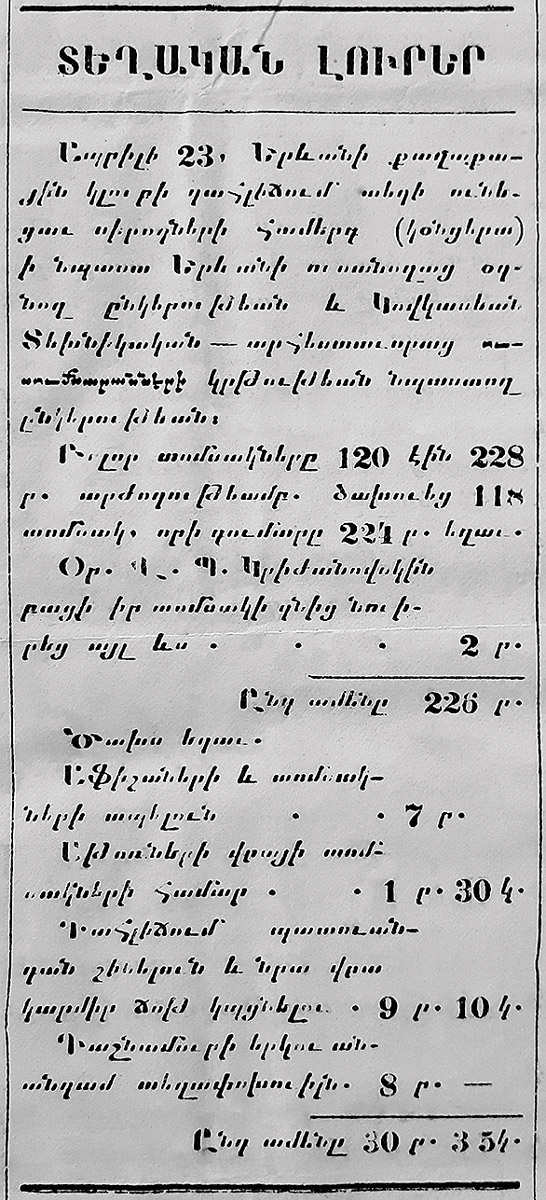 ՏԵՂԱԿԱՆ ԼՈՒՐԵՐ
Ապրիլի 23, Երևանի քաղաքա-
յին կլուբի դահլիճում տեղի ունե-
ցաւ սիրողների համերգ (կօնցերտ)
ի նպաստ Երևանի ուսանողաց օգ-
նող ընկերութեան և Կովկասեան
Տեխնիկական — արհեստաւորաց
կրթութեան նպաստող
ընկերութեան։
Բոլոր տոմսակները 120 էին 228
ր. արժողութեամբ. ծախուեց 118
տոմսակ, որի գումարը 224 ր. եղաւ.
Օր. Պ. Կրիժանովսկին
բացի իր տոմսակի գնից նուի-
րեց այլ ևս . . . 2 ր.
Ընդ ամենը 226 ր.
Ծախս եղաւ.
Աֆիշաների և տոմսակ-
ների տպելուն . . 7 ր.
Աթոռների վրայի տոմ-
սակների համար . . 1 ր. 30 կ.
Դահլիճում պատուան-
դան շինելուն և նրա վրա
կարմիր ճոթ կպցնելու . 9 ր. 10 կ.
Դաշնամուրի երկու ան-
անգամ տեղափոխուիլն. 8 ր. —
Ընդ ամենը 30 ր. 35 կ.